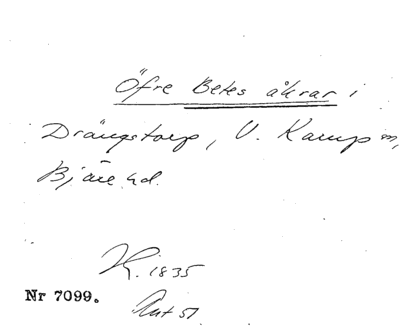 Öfre Betes åkrar i
Drängstorp, V. Karup sn,
Bjäre hd.
K. 1835
Nr 7099.
Ant 51